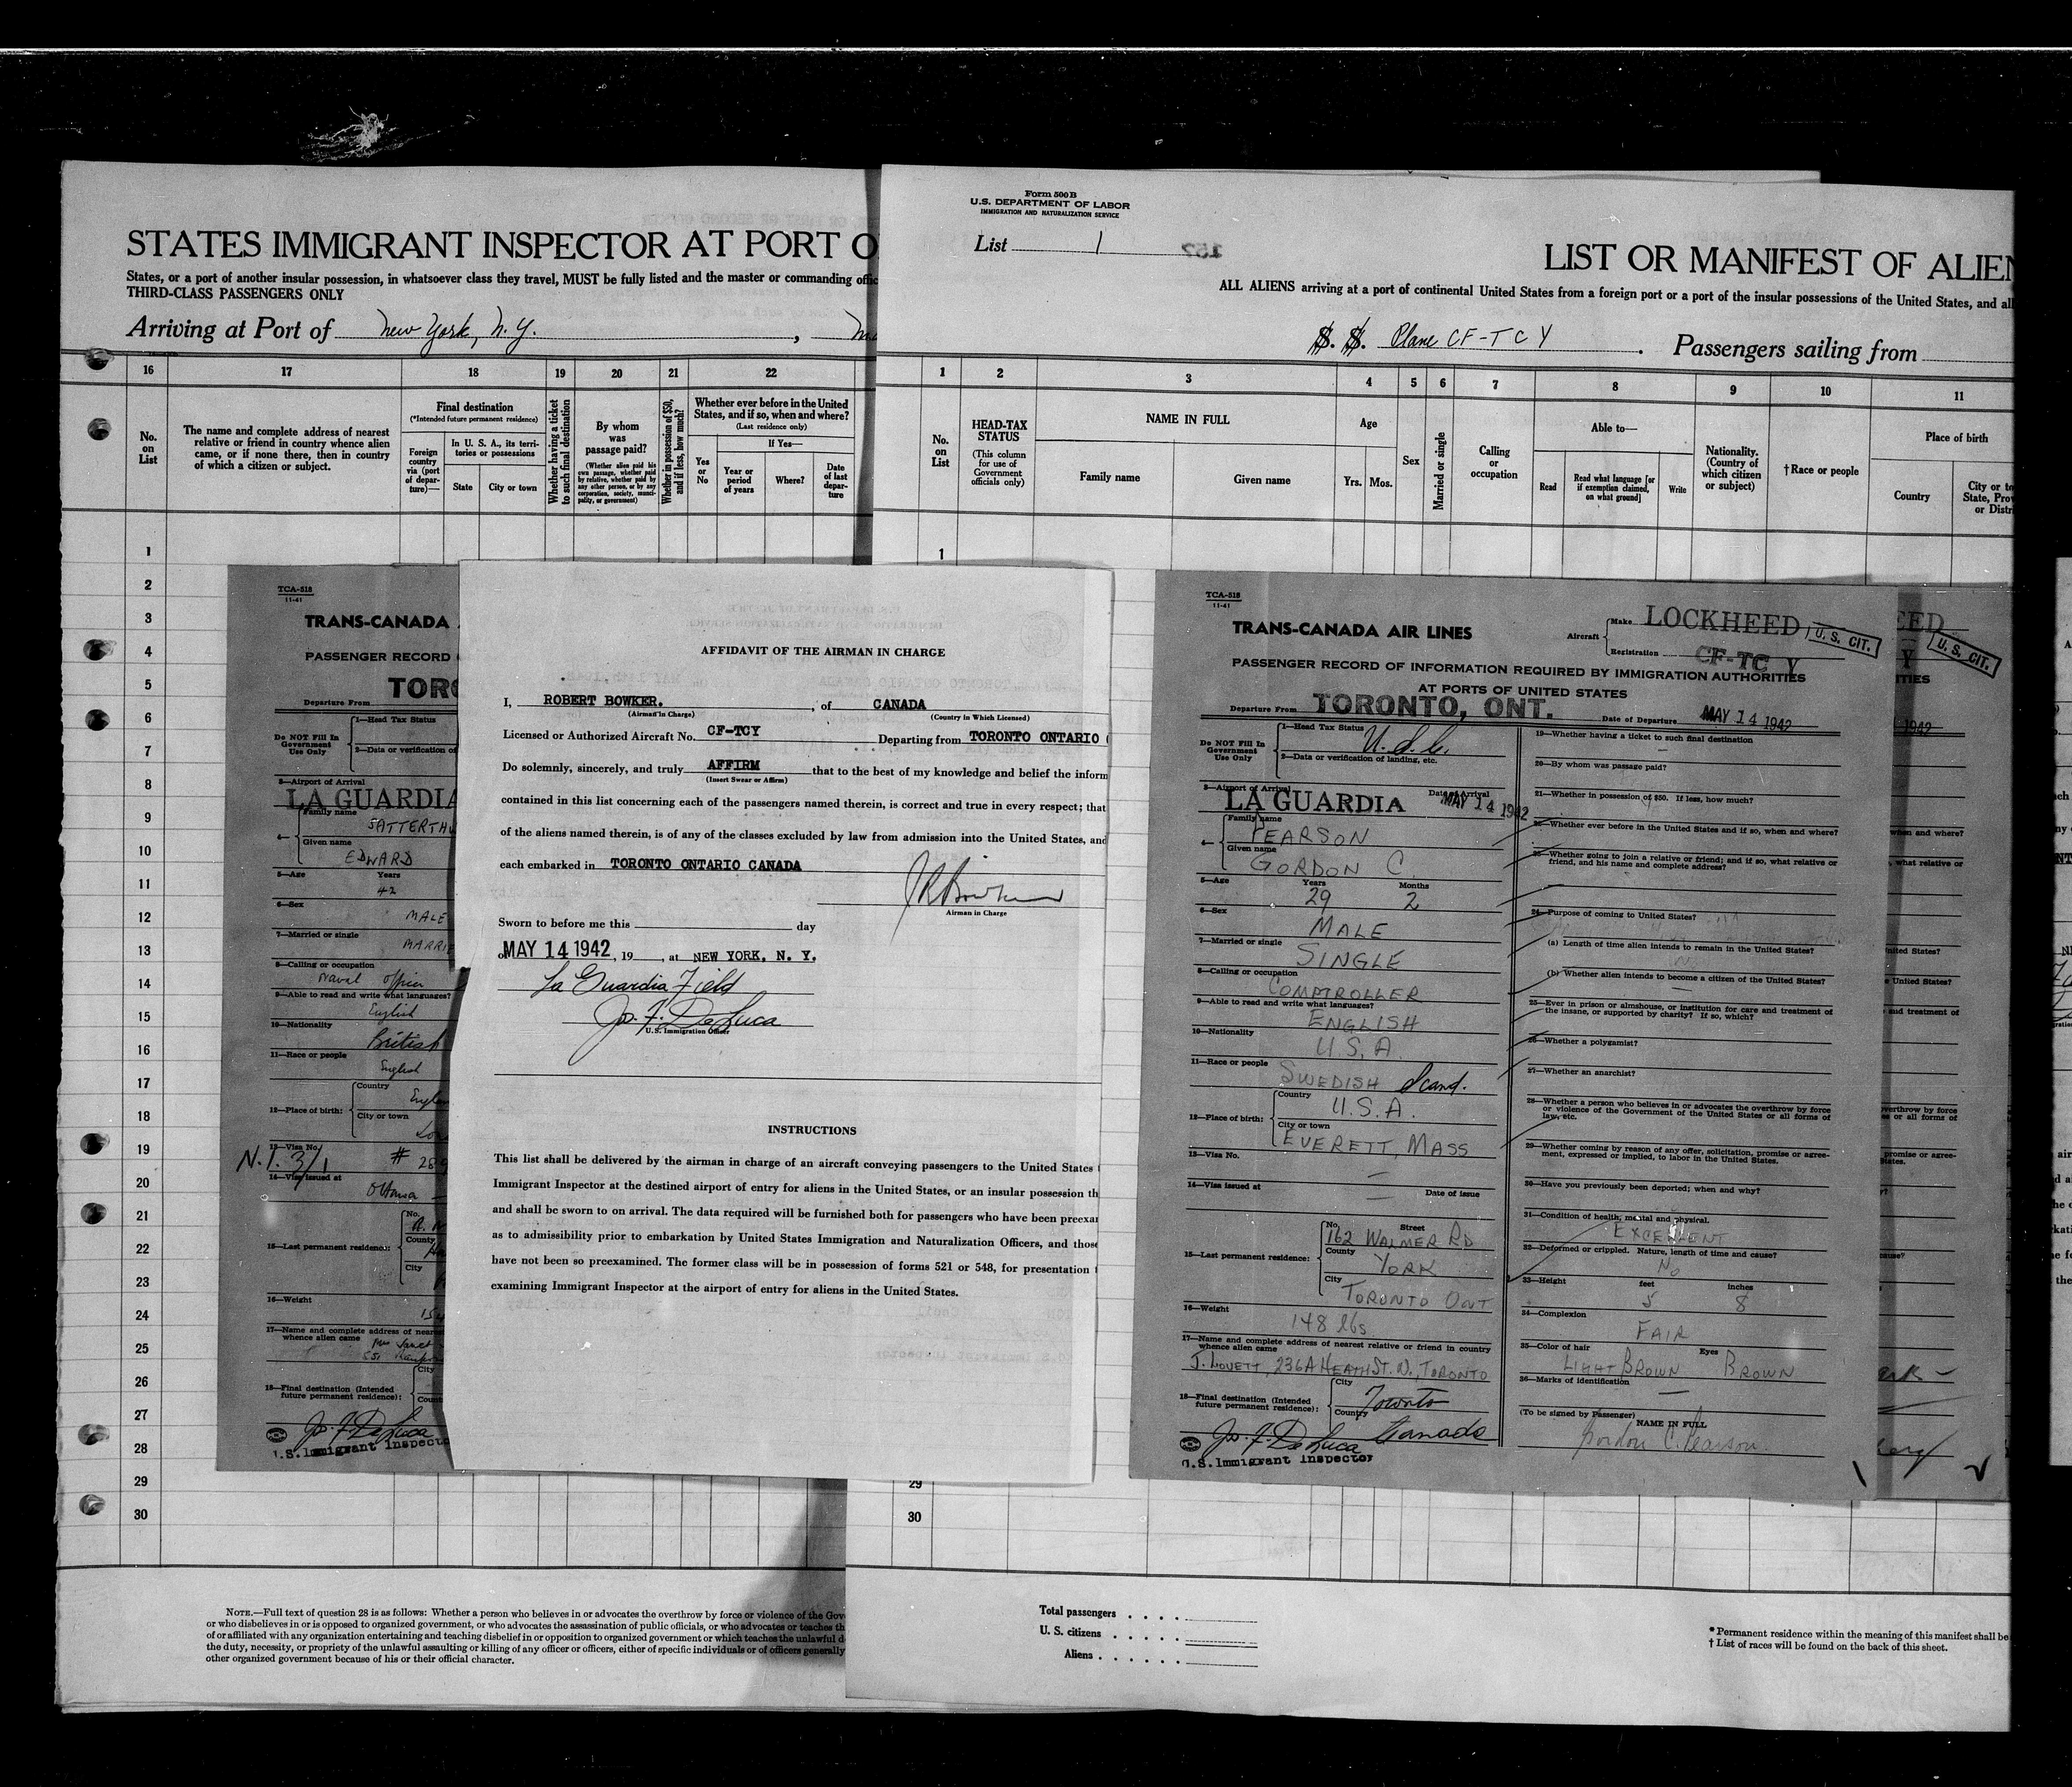 STATES IMMIGRANT INSPECTOR AT PORT O
States, or a port of another insular possession, in whatsoever class they travel, MUST be fully listed and the master or commanding offic
THIRD-CLASS PASSENGERS ONLY
Arriving at Port of New York, N.Y. ,
16 17 18 19 20 21 22
No. on List
The name and complete address of nearest
relative or friend in country whence alien
came, or if none there, then in country
of which a citizen or subject.
Final destination
(*Intended future permanent residence)
Foreign country via (port of departure)—
In U. S. A., its territories or possessions
State
City or town
Whether having a ticket to such final destination
By whom was passage paid?
(Whether alien paid his own passage, whether paid by relative, whether paid by any other person, or by any corporation, society, municipality, or government)
Whether in possession of $50, and if less, how much?
Whether ever before in the United States, and if so, when and where?
(Last residence only)
Yes or No
If Yes—
Year or period of years
Where?
Date of last departure
1
2
3
4
5
6
7
8
9
10
11
12
13
14
15
16
17
18
19
20
21
22
23
24
25
26
27
28
29
30
NOTE.—Full text of question 28 is as follows: Whether a person who believes in or advocates the overthrow by force or violence of the Gov
or who disbelieves in or is opposed to organized government, or who advocates the assassination of public officials, or who advocates or teaches th
of or affiliated with any organization entertaining and teaching disbelief in or opposition to organized government or which teaches the unlawful d
the duty, necessity, or propriety of the unlawful assaulting or killing of any officer or officers, either of specific individuals or of officers generally
other organized government because of his or their official character.
Form 500 B
U.S. DEPARTMENT OF LABOR
IMMIGRATION AND NATURALIZATION SERVICE
List 1
LIST OR MANIFEST OF ALIEN
ALL ALIENS arriving at a port of continental United States from a foreign port or a port of the insular possessions of the United States, and all
S. S. Plane CF-TCY . Passengers sailing from
1 2 3 4 5 6 7 8 9 10 11
No. on List
HEAD-TAX STATUS
(This column for use of Government officials only)
NAME IN FULL
Family name
Given name
Age
Yrs. Mos.
Sex
Married or single
Calling or occupation
Able to—
Read
Read what language [or if exemption claimed, on what ground]
Write
Nationality. (Country of which citizen or subject)
†Race or people
Place of birth
Country
City or to
State, Prov
or Distri
1
29
30
Total passengers
U. S. citizens
Aliens
* Permanent residence within the meaning of this manifest shall be
† List of races will be found on the back of this sheet.
TCA-518
11-41
TRANS-CANADA
PASSENGER RECORD
TORO
Departure From
Do NOT Fill In Government Use Only
1—Head Tax Status
2—Data or verification of
3—Airport of Arrival
LA GUARDIA
4— Family name
SATTERTH
Given name
EDWARD
5—Age Years
42
6—Sex
MALE
7—Married or single
MARRIE
8—Calling or occupation
Naval officer
9—Able to read and write what languages?
English
10—Nationality
British
11—Race or people
English
12—Place of birth:
Country
Engla
City or town
13—Visa No.
N.I. 3/1 #
14—Visa issued at
Ottawa
15—Last permanent residence:
No.
County
City
16—Weight
17—Name and complete address of neares
whence alien came
18—Final destination (Intended
future permanent residence):
City
Coun
Jo. F. DeLuca
U.S. Immigrant Inspecto
AFFIDAVIT OF THE AIRMAN IN CHARGE
I, ROBERT BOWKER. , of CANADA
(Airman in Charge) (Country in Which Licensed)
Licensed or Authorized Aircraft No. CF-TCY Departing from TORONTO ONTARIO
Do solemnly, sincerely, and truly AFFIRM that to the best of my knowledge and belief the inform
(Insert Swear or Affirm)
contained in this list concerning each of the passengers named therein, is correct and true in every respect; that
of the aliens named therein, is of any of the classes excluded by law from admission into the United States, and
each embarked in TORONTO ONTARIO CANADA
Airman in Charge
Sworn to before me this day
of MAY 14 1942, 19 , at NEW YORK, N. Y.
La Guardia Field
Jo. F. DeLuca
U.S. Immigration Officer
INSTRUCTIONS
This list shall be delivered by the airman in charge of an aircraft conveying passengers to the United States
Immigrant Inspector at the destined airport of entry for aliens in the United States, or an insular possession th
and shall be sworn to on arrival. The data required will be furnished both for passengers who have been preexam
as to admissibility prior to embarkation by United States Immigration and Naturalization Officers, and those
have not been so preexamined. The former class will be in possession of forms 521 or 548, for presentation
examining Immigrant Inspector at the airport of entry for aliens in the United States.
TCA-518
11-41
TRANS-CANADA AIR LINES
Aircraft Make LOCKHEED
Registration CF-TC Y
U. S. CIT.
PASSENGER RECORD OF INFORMATION REQUIRED BY IMMIGRATION AUTHORITIES
AT PORTS OF UNITED STATES
Departure From TORONTO, ONT. Date of Departure MAY 14 1942
Do NOT Fill In Government Use Only
1—Head Tax Status U.S.C.
2—Data or verification of landing, etc.
3—Airport of Arrival Date of Arrival
LA GUARDIA MAY 14 1942
4— Family name
PEARSON
Given name
GORDON C.
5—Age Years Months
29 2
6—Sex
MALE
7—Married or single
SINGLE
8—Calling or occupation
COMPTROLLER
9—Able to read and write what languages?
ENGLISH
10—Nationality
U.S.A.
11—Race or people
SWEDISH Scand.
12—Place of birth:
Country
U.S.A.
City or town
EVERETT, MASS
13—Visa No.
—
14—Visa issued at Date of issue
—
15—Last permanent residence:
No. Street
162 WALMER RD
County
YORK
City
TORONTO ONT
16—Weight
148 lbs
17—Name and complete address of nearest relative or friend in country
whence alien came
J. LOVETT, 236A HEATH ST. W., TORONTO
18—Final destination (Intended
future permanent residence):
City
Toronto
County
Canada
Jo. F. DeLuca
U.S. Immigrant Inspector
19—Whether having a ticket to such final destination
20—By whom was passage paid?
21—Whether in possession of $50. If less, how much?
22—Whether ever before in the United States and if so, when and where?
23—Whether going to join a relative or friend; and if so, what relative or
friend, and his name and complete address?
24—Purpose of coming to United States?
(a) Length of time alien intends to remain in the United States?
(b) Whether alien intends to become a citizen of the United States?
25—Ever in prison or almshouse, or institution for care and treatment of
the insane, or supported by charity? If so, which?
26—Whether a polygamist?
27—Whether an anarchist?
28—Whether a person who believes in or advocates the overthrow by force
or violence of the Government of the United States or all forms of
law, etc.
29—Whether coming by reason of any offer, solicitation, promise or agree-
ment, expressed or implied, to labor in the United States.
30—Have you previously been deported; when and why?
31—Condition of health, mental and physical.
EXCELLENT
32—Deformed or crippled. Nature, length of time and cause?
No
33—Height feet inches
5 8
34—Complexion
FAIR
35—Color of hair Eyes
LIGHT BROWN BROWN
36—Marks of identification
—
(To be signed by Passenger) NAME IN FULL
Gordon C. Pearson
EED
U. S. CIT.
Y
ITIES
1942
when and where?
, what relative or
nited States?
e United States?
and treatment of
overthrow by force
es or all forms of
promise or agree-
States.
cause?